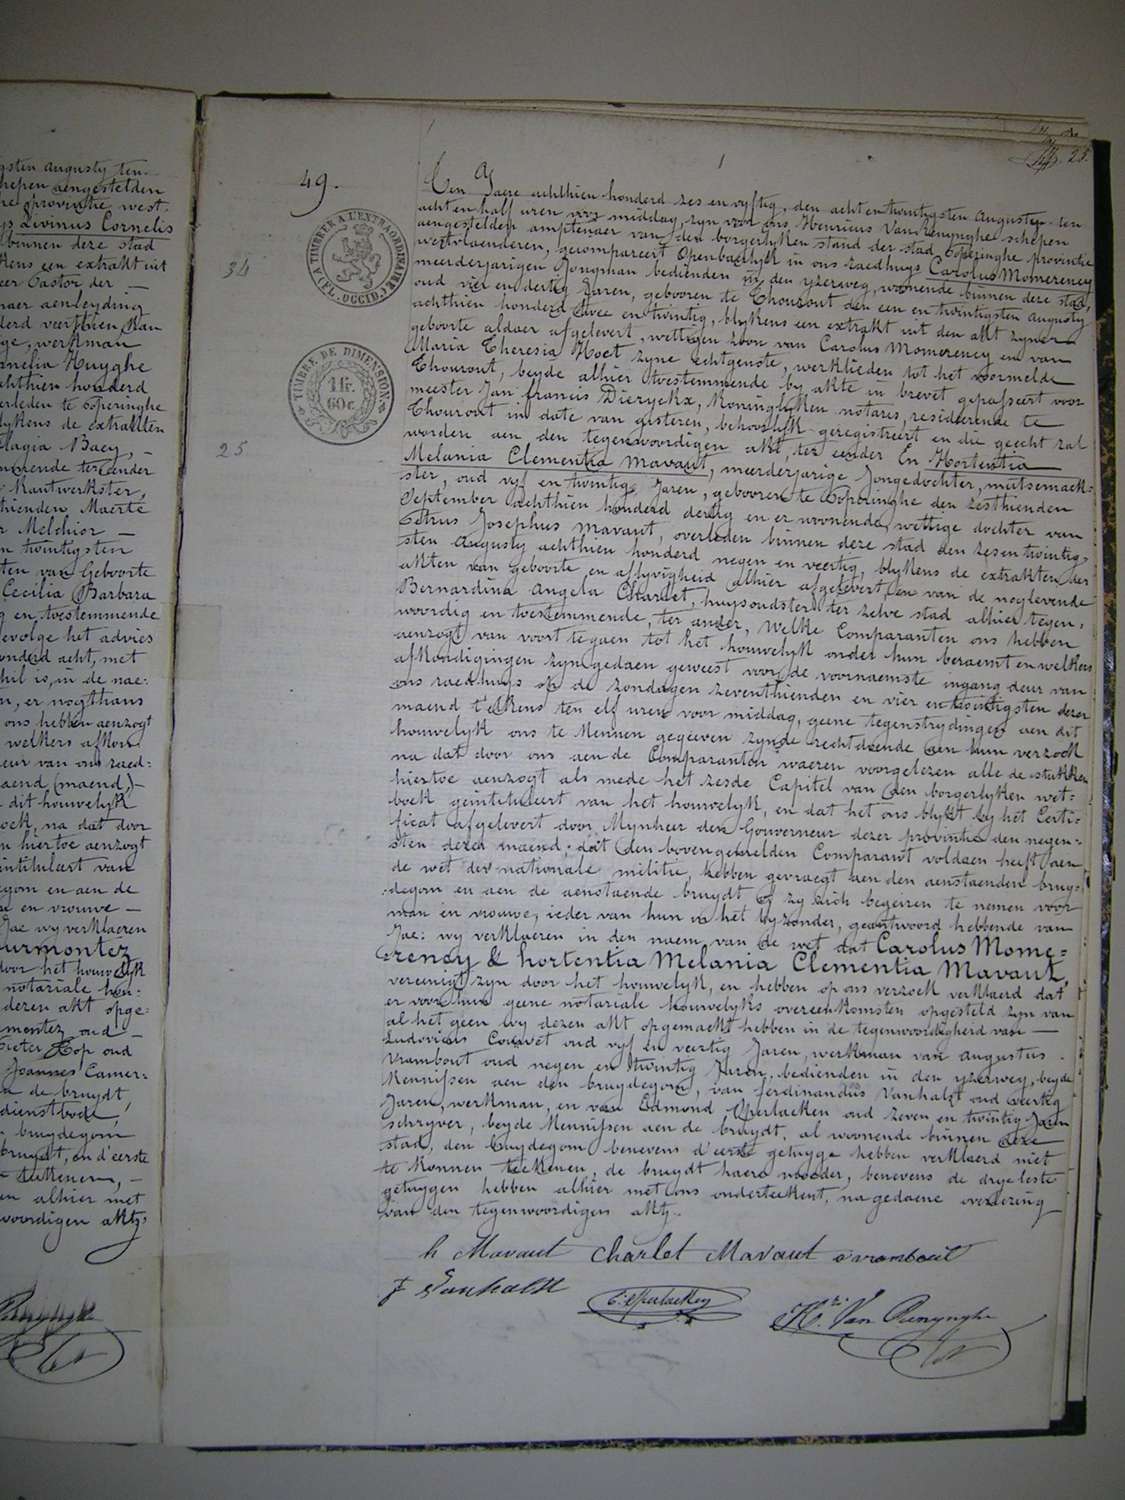 gsten augusty ten
hepen aengestelden
het provintie west.
ys Livinus Cornelis
binnen deze stad
kens een extrakt uit
eer Pastor der —
naer aenleyding
derd veerthien Jan
ge, werkman
rnelia Huyghe
achthien honderd
erleden te Poperinghe
lykens de extrakten
elagia Baey, —
mmende ter ander
Kantwerkster,
thienden Maerte
r Melchior —
n twintigsten
ten van Geboorte
Cecilia Barbara
g en toestemmende
gevolge het advies
onderd acht, met
hil is, in de nae:
n, er nogthans
ons hebben aenzogt
welkers afkon
eur van ons raed:
aend (maend,)—
dit houwelyk
oek, na dat door
n hiertoe aenzogt
intitulert van
egom en aen de
n en vrouwe —
Jae wy verklaeren
urmontez
door het houwelyk
notariale hou:
dezen akt opge:
montez oud —
Pieter Top oud
Joannes Camer:
n de bruydt,
dienstbode,
bruydegom
bruydt, en d'eerste
teekenen, —
en alhier met
woordigen akt,
25.
49.
34
25
TIMBRE A L'EXTRAORDINAIRE
(FL. OCCID.)
TIMBRE DE DIMENSION
1 fr.
60 c.
Ten Jaere achthien honderd zes en vyftig, den acht en twintigsten augusty ten
acht en half uren voor middag, zyn voor ons Henricus Van Renynghe schepen
aengestelden amptenaer van den borgerlyken stand der stad Poperinghe provintie
westvlaenderen, gecompareert openbaerlyk in ons raedhuys Carolus Momerency
meerderjarigen Jongman bedienden in den yzerweg, woonende binnen deze stad,
oud vier en dertig Jaren, gebooren te Thourout den een en twintigsten augusty
achthien honderd twee en twintig, blykens een extrakt uit den akt zyner
geboorte aldaer afgelevert, wettigen zoon van Carolus Momerency en van
Maria Theresia Hoet zyne echtgenote, werklieden tot het voormelde
Thourout, beyde alhier toestemmende by akte in brevet gepasseert voor
meester Jan francis Dieryckx, Koninglyken notaris, residerende te
Thourout in date van gisteren, behoorlyk geregistreert en die geecht zal
worden aen den tegenwoordigen akt, ter eender En Hortentia
Melania Clementia Mavaut, meerderjarige Jongedochter, mutsemaek:
ster, oud vyf en twintig Jaren, gebooren te Poperinghe den zesthienden
September achthien honderd dertig en er woonende, wettige dochter van
Petrus Josephus Mavaut, overleden binnen deze stad den zesen twintig:
sten augusty achthien honderd negen en veertig, blykens de extrakten der
akten van geboorte en aflyvigheid alhier afgelevert, en van de noglevende
Bernardina Angela Charlet, huysoudster ter zelve stad alhier tegen:
woordig en toestemmende, ter ander, Welke Comparanten ons hebben
aenzogt van voort te gaen tot het houwelyk onder hun beraemt en welkers
afkondigingen zyn gedaen geweest voor de voornaemste ingang deur van
ons raedhuys op de zondagen zeventhienden en vier en twintigsten dezer
maend t'elkens ten elf uren voor middag, geene tegenstrydingen aen dit
houwelyk ons te Kennen gegeeven zynde rechtdoende aen hun verzoek
na dat door ons aen de Comparanten waeren voorgelezen alle de stukken
hiertoe aenzogt als mede het zesde Capitel van den borgerlyken wet:
boek geintituleert van het houwelyk, en dat het ons blykt by het Certi:
ficat afgelevert door Mynheer den Gouverneur dezer provintie den negen:
sten dezer maend, dat den bovengemelden Comparant voldaen heeft aen
de wet der nationale militie, hebben gevraegt aen den aenstaenden bruy:
degom en aen de aenstaende bruydt of zy zich begeiren te nemen voor
man en vrouwe, ieder van hun in het byzonder, geantwoord hebbende van
Jae: wy verklaeren in den naem van de wet dat Carolus Mome:
rency & hortentia Melania Clementia Mavaut,
vereenigt zyn door het houwelyk, en hebben op ons verzoek verklaerd dat
er voor hun geene notariale houwelyks overeenkomsten opgesteld zyn van
al het geen wy dezen akt opgemaekt hebben in de tegenwoordigherd van —
Ludovicus Couvet oud vyf en veertig Jaren, werkman van Augustus
Vrambout oud negen en twintig Jaren, bedienden in den yzerweg, beyde
Kennissen aen den bruydegom, van ferdinandus Vanhalst oud veertig
Jaren, werkman, en van Edmond Sperlaeken oud zeven en twintig Jaren
schryver, beyde Kennissen aen de bruydt, al woonende binnen deze
stad, den bruydegom benevens d'eerste getuyge hebben verklaerd niet
te konnen teekenen, de bruydt haere moeder, benevens de drye leste
getuygen hebben alhier met ons onderteekent, na gedaene overlezing
van den tegenwoordigen akt,.
h Mavaut Charlet Mavaut a vrambout
F Vanhalst
E. Sperlaeken
H.ri Van Renynghe